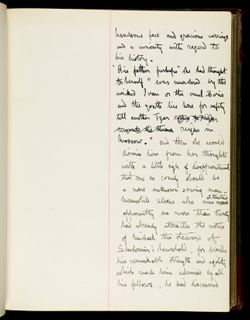 handsome face and gracious carriage
and a curiosity with regard to
his history.
"His father perhaps" she had thought
to herself "was murdered by the
wicked Ivan or the cruel Boris
and the youth lies here for safety
till another Tzar
reigns in
Moscow." And then she would
dismiss him from her thoughts
with a little sigh of disappointment
that one so comely should be
a mere unknown serving man.
Meanwhile Alexis who
apparently no more than twenty
had already attracted the notice
of Michael the steward of
household, for besides
his remarkable strength and agility
which made him admired by all
his fellows, he had discovered